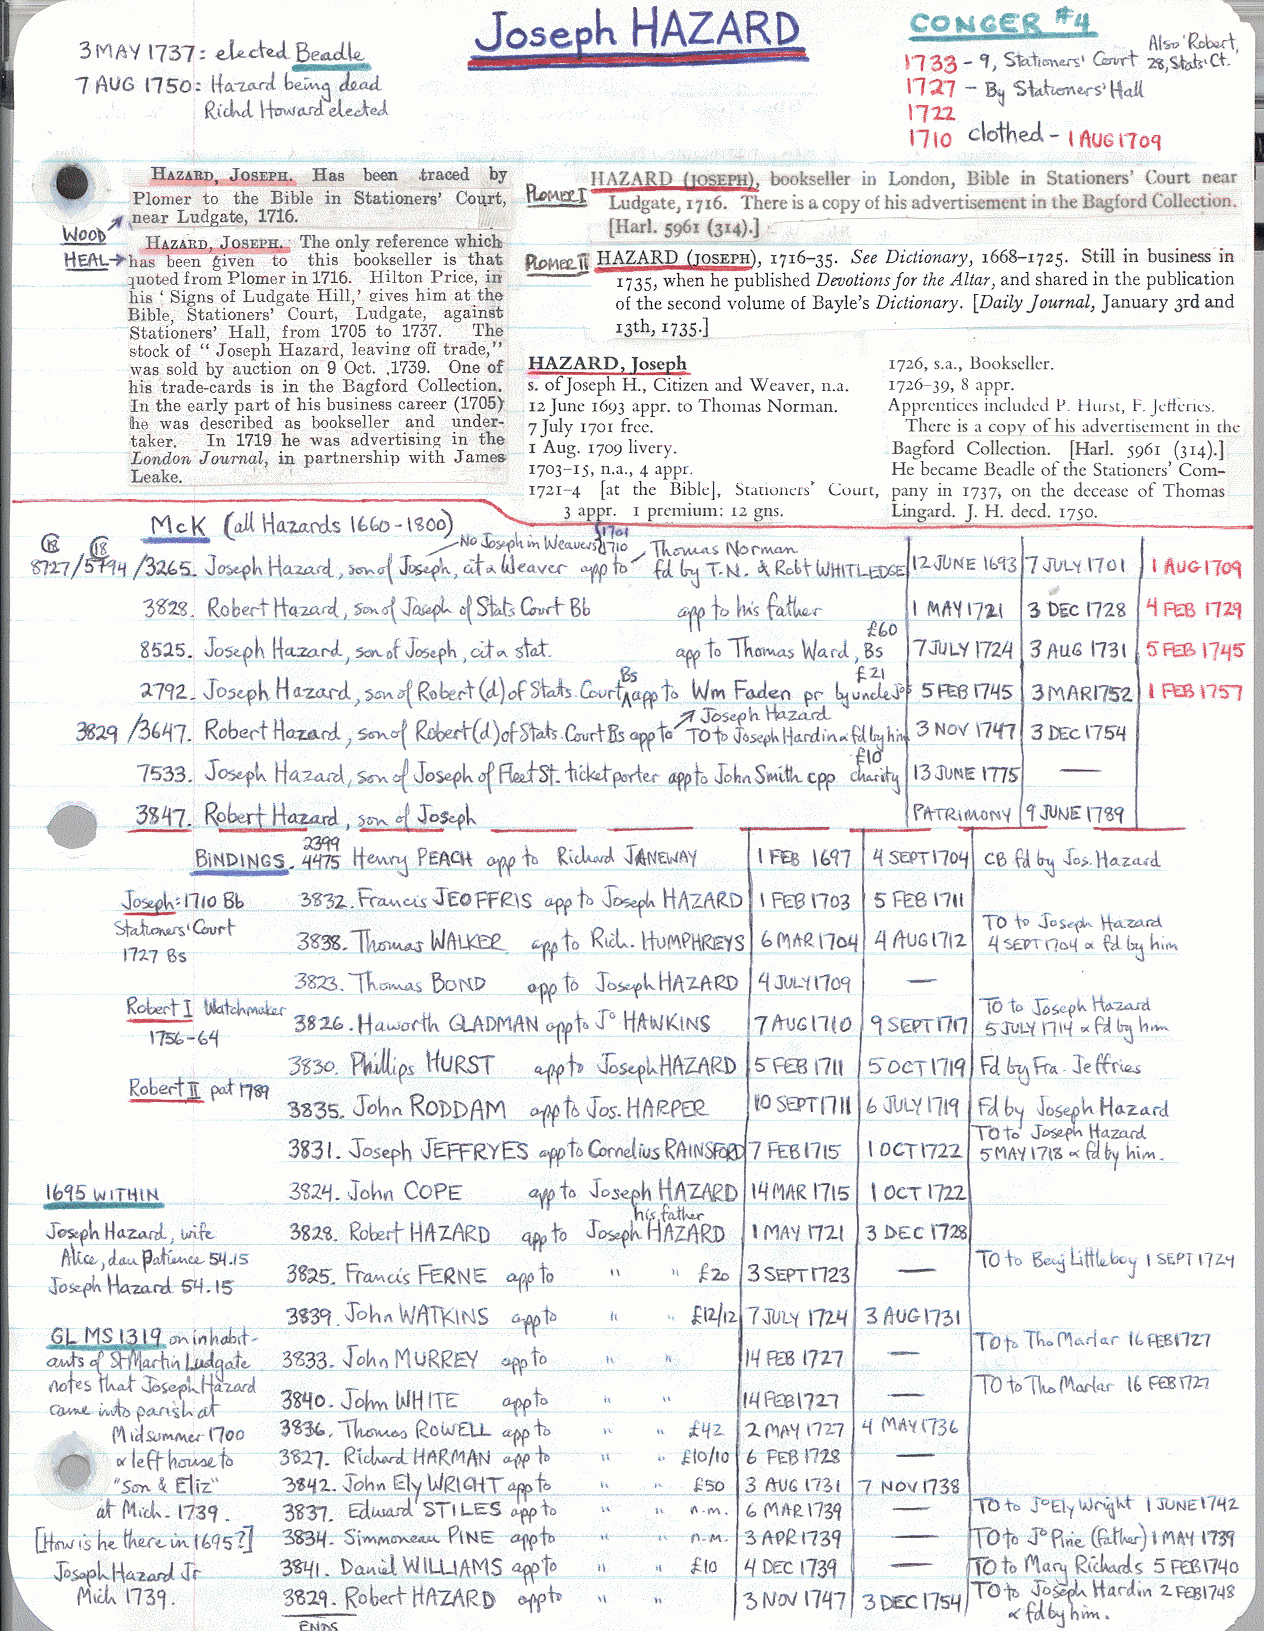 Joseph HAZARD
3 MAY 1737: elected Beadle
7 AUG 1750: Hazard being dead
Richd Howard elected
CONGER #4
1733 - 9, Stationers' Court
Also Robert,
28, Stats' Ct.
1727 - By Stationers' Hall
1722
1710 clothed - 1 AUG 1709
WOOD
HAZARD, JOSEPH. Has been traced by
Plomer to the Bible in Stationers' Court,
near Ludgate, 1716.
HEAL
HAZARD, JOSEPH. The only reference which
has been given to this bookseller is that
quoted from Plomer in 1716. Hilton Price, in
his 'Signs of Ludgate Hill,' gives him at the
Bible, Stationers' Court, Ludgate, against
Stationers' Hall, from 1705 to 1737. The
stock of "Joseph Hazard, leaving off trade,"
was sold by auction on 9 Oct. 1739. One of
his trade-cards is in the Bagford Collection.
In the early part of his business career (1705)
he was described as bookseller and under-
taker. In 1719 he was advertising in the
London Journal, in partnership with James
Leake.
PLOMER I
HAZARD (JOSEPH), bookseller in London, Bible in Stationers' Court near
Ludgate, 1716. There is a copy of his advertisement in the Bagford Collection.
[Harl. 5961 (314).]
PLOMER II
HAZARD (JOSEPH), 1716–35. See Dictionary, 1668–1725. Still in business in
1735, when he published Devotions for the Altar, and shared in the publication
of the second volume of Bayle's Dictionary. [Daily Journal, January 3rd and
13th, 1735.]
HAZARD, Joseph
s. of Joseph H., Citizen and Weaver, n.a.
12 June 1693 appr. to Thomas Norman.
7 July 1701 free.
1 Aug. 1709 livery.
1703–15, n.a., 4 appr.
1721–4 [at the Bible], Stationers' Court,
3 appr. 1 premium: 12 gns.
1726, s.a., Bookseller.
1726–39, 8 appr.
Apprentices included P. Hurst, F. Jefferies.
There is a copy of his advertisement in the
Bagford Collection. [Harl. 5961 (314).]
He became Beadle of the Stationers' Com-
pany in 1737, on the decease of Thomas
Lingard. J. H. decd. 1750.
McK (all Hazards 1660-1800)
No Joseph in Weavers 1701 1710
18 18
8727/5794/3265. Joseph Hazard, son of Joseph, cit a Weaver app to Thomas Norman fd by T.N. & Robt WHITLEDGE 12 JUNE 1693 7 JULY 1701 1 AUG 1709
3828. Robert Hazard, son of Joseph of Stats Court Bb app to his father 1 MAY 1721 3 DEC 1728 4 FEB 1729
8525. Joseph Hazard, son of Joseph, cit a stat. app to Thomas Ward, Bs £60 7 JULY 1724 3 AUG 1731 5 FEB 1745
2792. Joseph Hazard, son of Robert (d) of Stats. Court Bs app to Wm Faden pr £21 by uncle Jos 5 FEB 1745 3 MAR 1752 1 FEB 1757
3829/3647. Robert Hazard, son of Robert (d) of Stats. Court Bs app to Joseph Hazard TO to Joseph Hardin & fd by him 3 NOV 1747 3 DEC 1754
7533. Joseph Hazard, son of Joseph of Fleet St. ticket porter app to John Smith cpp £10 charity 13 JUNE 1775 —
3847. Robert Hazard, son of Joseph PATRIMONY 9 JUNE 1789
BINDINGS. 2399 4475 Henry PEACH app to Richard JANEWAY 1 FEB 1697 4 SEPT 1704 CB fd by Jos. Hazard
Joseph: 1710 Bb
Stationers' Court
1727 Bs
3832. Francis JEOFFRIS app to Joseph HAZARD 1 FEB 1703 5 FEB 1711
3838. Thomas WALKER app to Rich. HUMPHREYS 6 MAR 1704 4 AUG 1712 TO to Joseph Hazard 4 SEPT 1704 & fd by him
3823. Thomas BOND app to Joseph HAZARD 4 JULY 1709 —
Robert I Watchmaker
1756-64
3826. Haworth GLADMAN app to Jo HAWKINS 7 AUG 1710 9 SEPT 1717 TO to Joseph Hazard 5 JULY 1714 & fd by him
3830. Phillips HURST app to Joseph HAZARD 5 FEB 1711 5 OCT 1719 Fd by Fra. Jeffries
Robert II pat 1789
3835. John RODDAM app to Jos. HARPER 10 SEPT 1711 6 JULY 1719 Fd by Joseph Hazard
3831. Joseph JEFFRYES app to Cornelius RAINSFORD 7 FEB 1715 1 OCT 1722 TO to Joseph Hazard 5 MAY 1718 & fd by him.
3824. John COPE app to Joseph HAZARD 14 MAR 1715 1 OCT 1722
3828. Robert HAZARD app to his father Joseph HAZARD 1 MAY 1721 3 DEC 1728
3825. Francis FERNE app to " " £20 3 SEPT 1723 — TO to Benj Littleboy 1 SEPT 1724
3839. John WATKINS app to " " £12/12 7 JULY 1724 3 AUG 1731
3833. John MURREY app to " " 14 FEB 1727 — TO to Tho Marlar 16 FEB 1727
3840. John WHITE app to " " 14 FEB 1727 — TO to Tho Marlar 16 FEB 1727
3836. Thomas ROWELL app to " " £42 2 MAY 1727 4 MAY 1736
3827. Richard HARMAN app to " " £10/10 6 FEB 1728
3842. John Ely WRIGHT app to " " £50 3 AUG 1731 7 NOV 1738
3837. Edward STILES app to " " n.m. 6 MAR 1739 — TO to Jo Ely Wright 1 JUNE 1742
3834. Simmoneau PINE app to " " n.m. 3 APR 1739 — TO to Jo Pine (father) 1 MAY 1739
3841. Daniel WILLIAMS app to " " £10 4 DEC 1739 — TO to Mary Richards 5 FEB 1740
3829. Robert HAZARD app to " " 3 NOV 1747 3 DEC 1754 TO to Joseph Hardin 2 FEB 1748 & fd by him.
ENDS
1695 WITHIN
Joseph Hazard, wife
Alice, dau Patience 54.15
Joseph Hazard 54.15
GL MS 1319 on inhabit-
ants of St Martin Ludgate
notes that Joseph Hazard
came into parish at
Midsummer 1700
& left house to
"Son & Eliz"
at Mich. 1739.
[How is he there in 1695?]
Joseph Hazard Jr
Mich 1739.